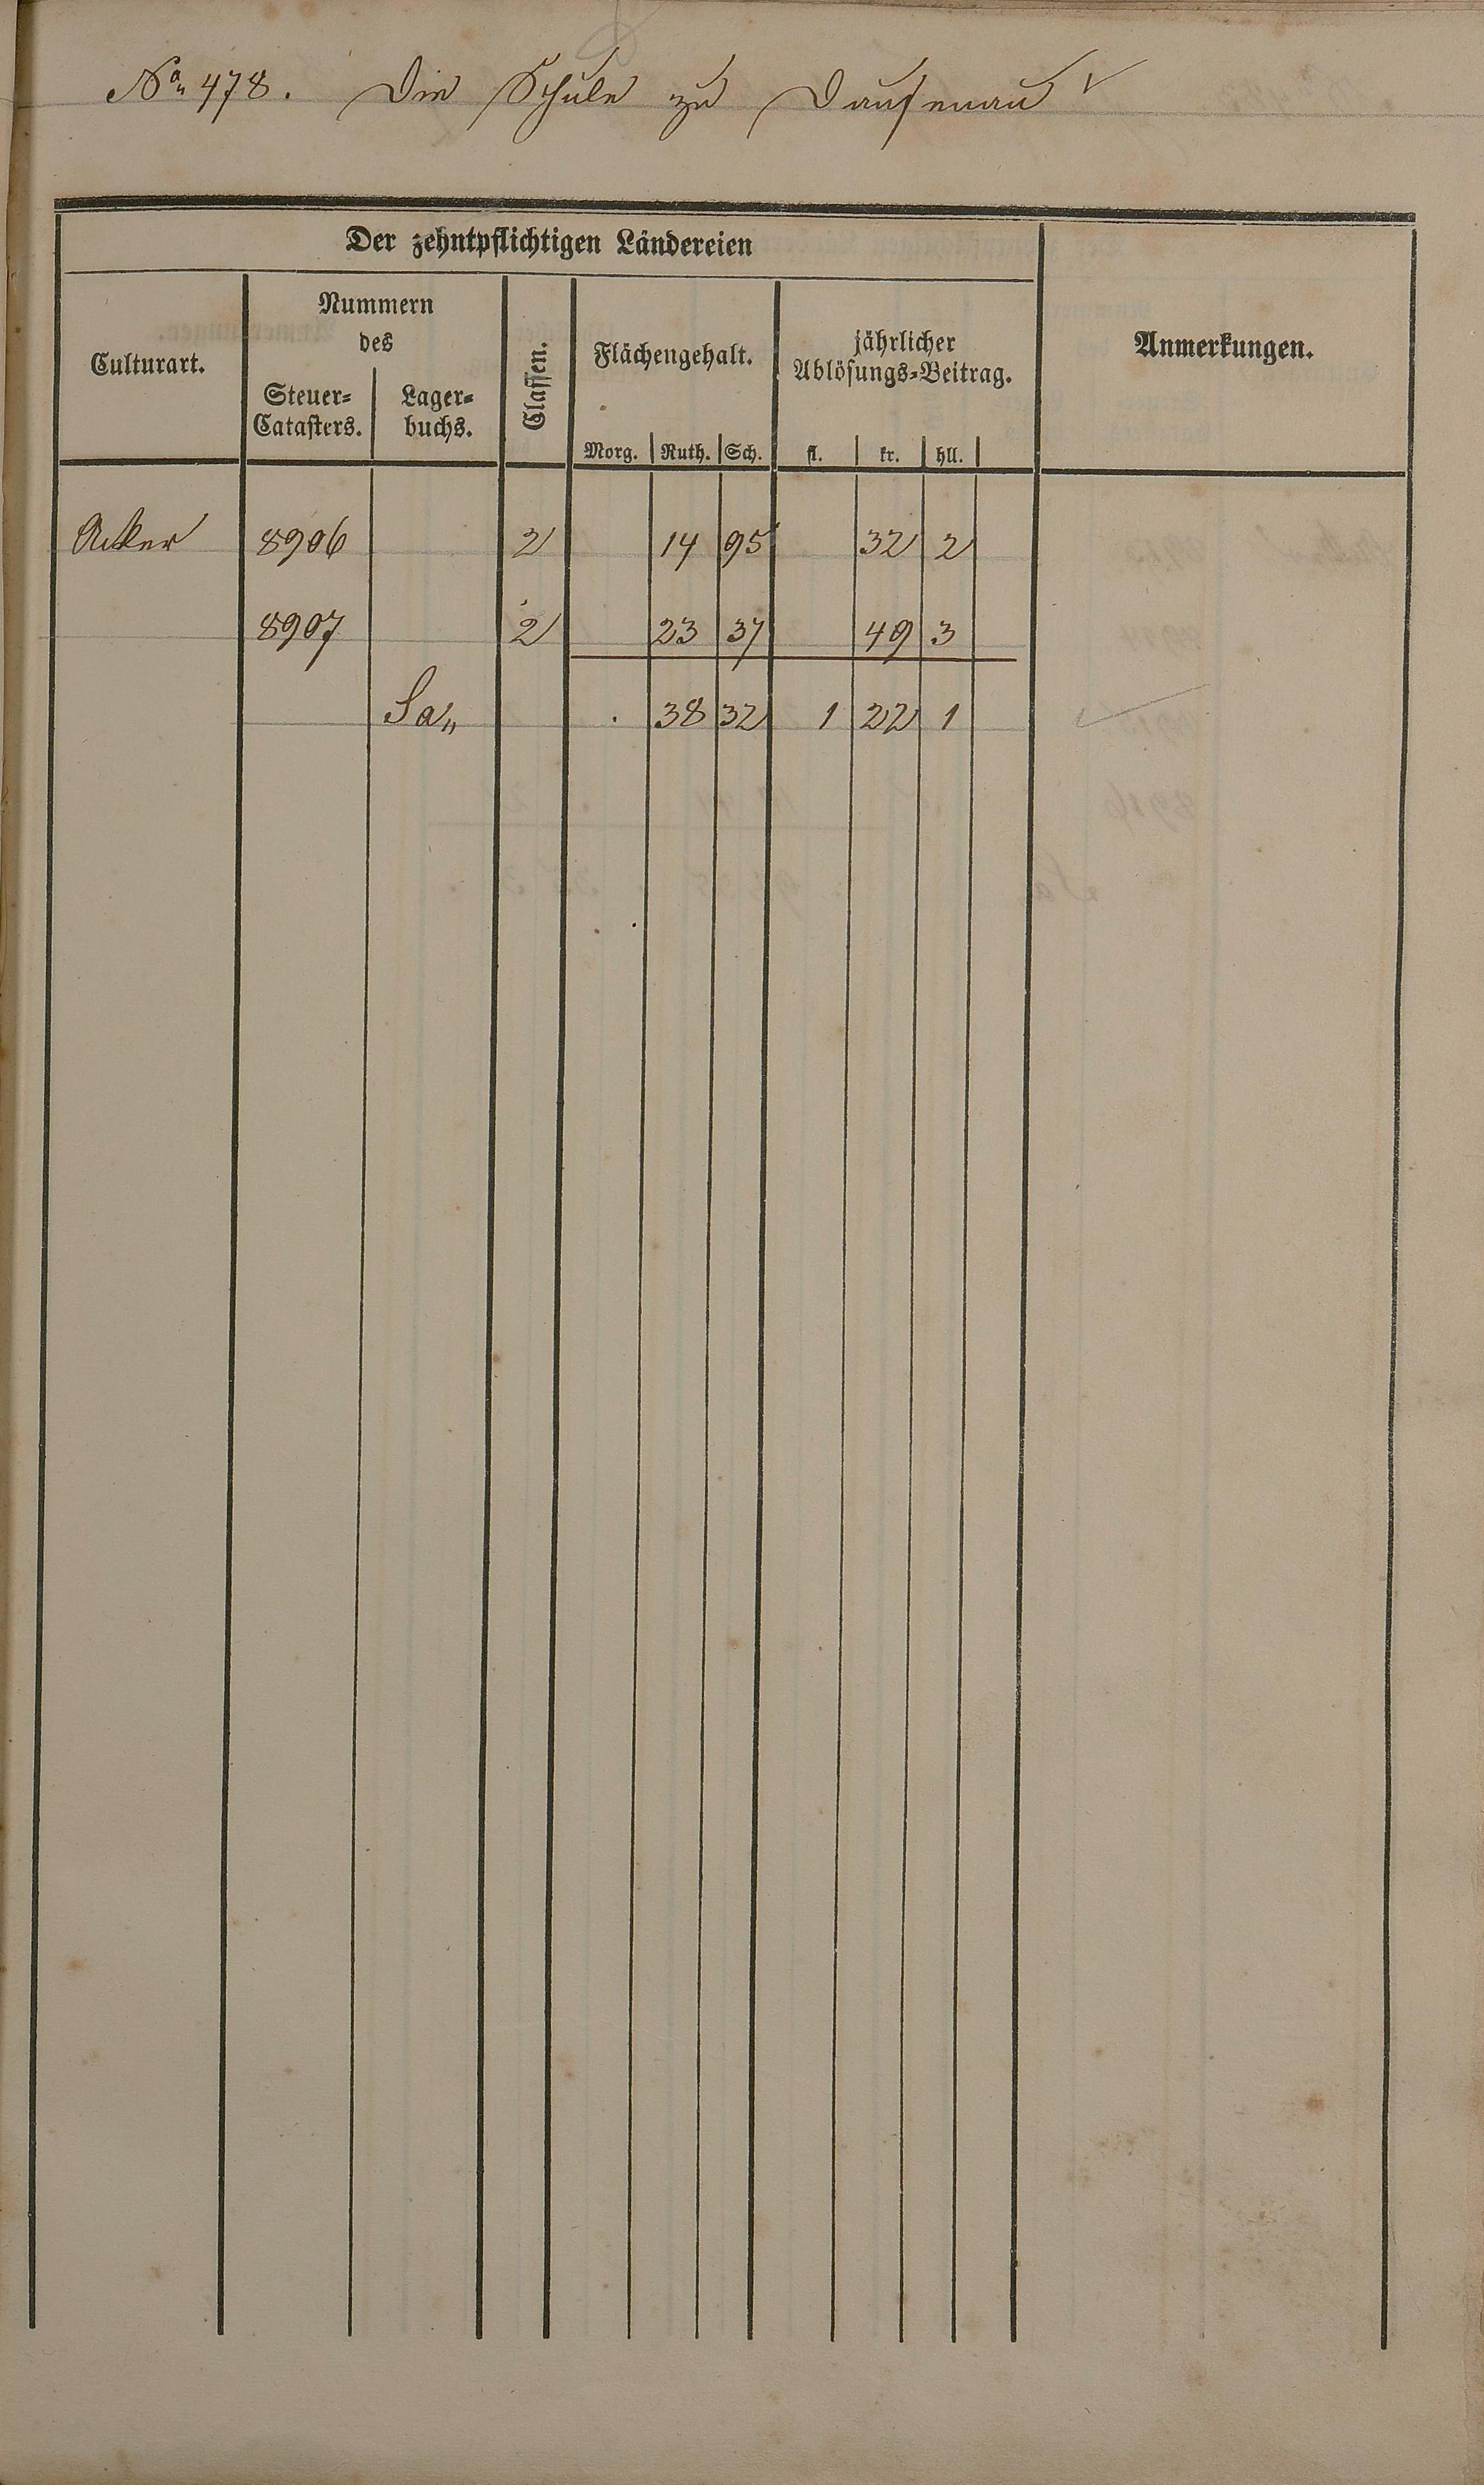 No 478. Die Schule zu Dausenau
Der zehntpflichtigen Ländereien
Culturart.
Nummern
des
Steuer=
Catasters.
Lager=
buchs.
Classen.
Flächengehalt.
Morg. Ruth. Sch.
jährlicher
Ablösungs=Beitrag.
fl. kr. hll.
Anmerkungen.
Acker 8906 2 14 95 32 2
8907 2 23 37 49 3
Sa„ . 38 32 1 22 1